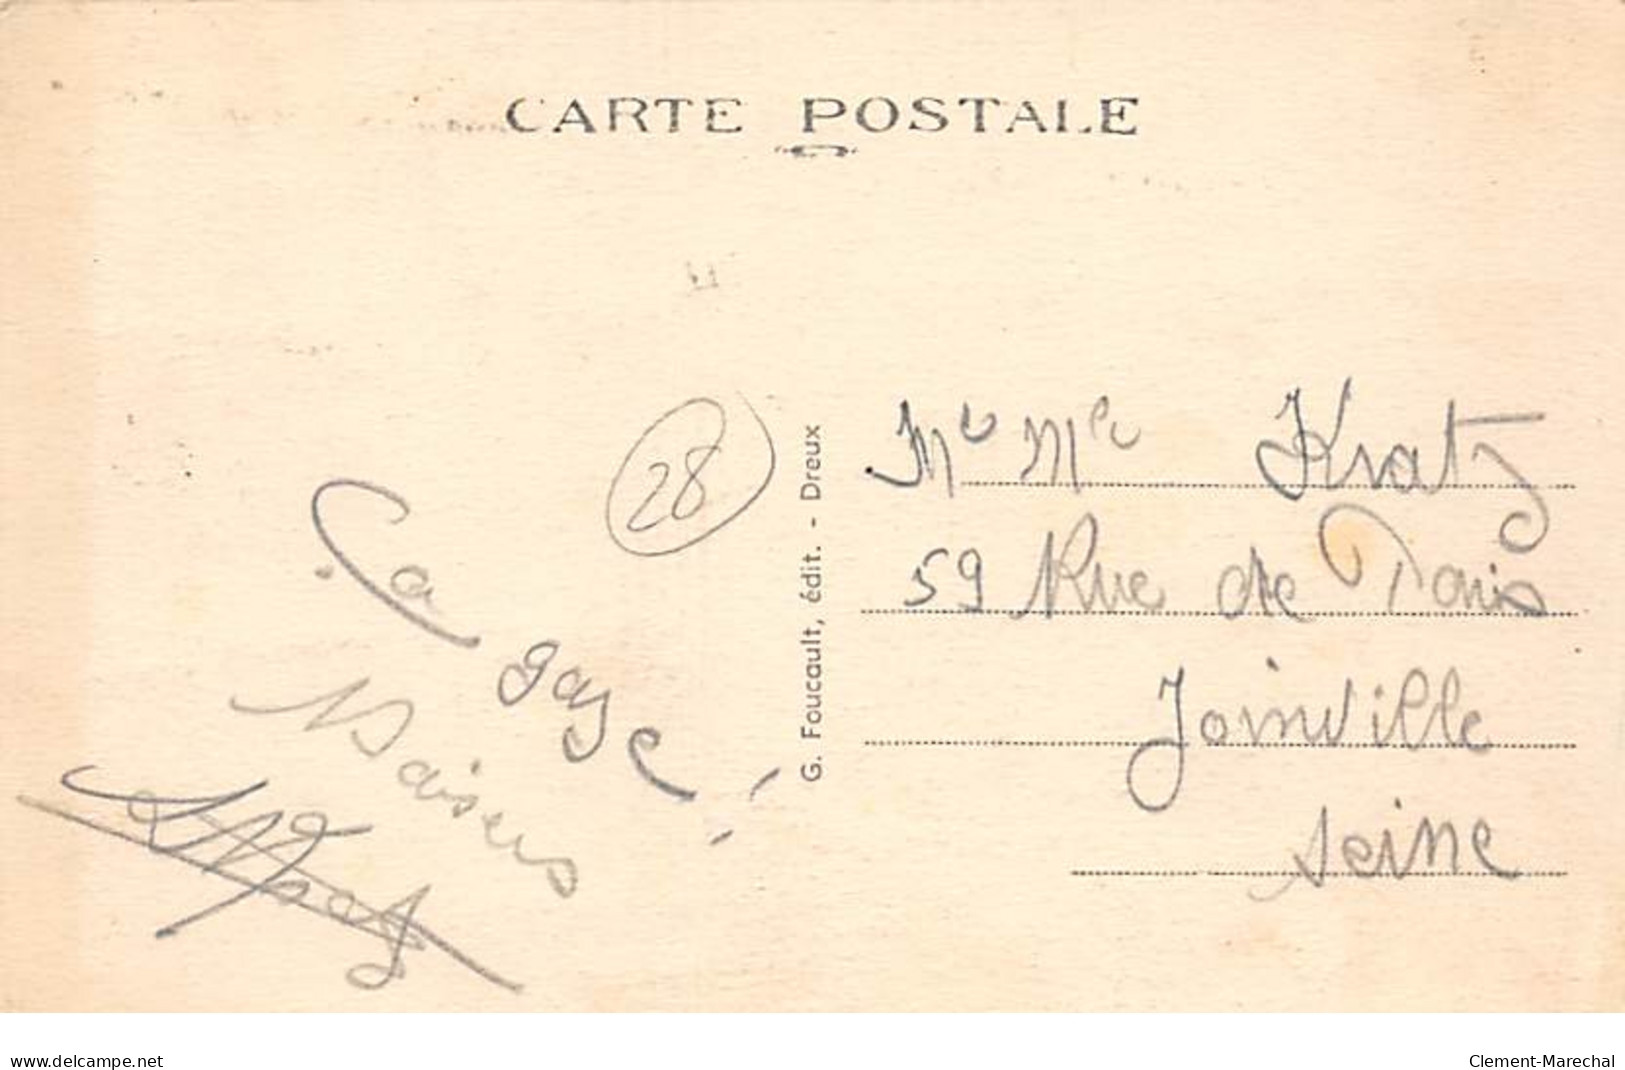 CARTE POSTALE
28
Ça gaze !
Baisers
G. Foucault, édit. - Dreux
Mr Mme Kratz
59 Rue de Paris
Joinville
Seine
www.delcampe.net
Clement-Marechal